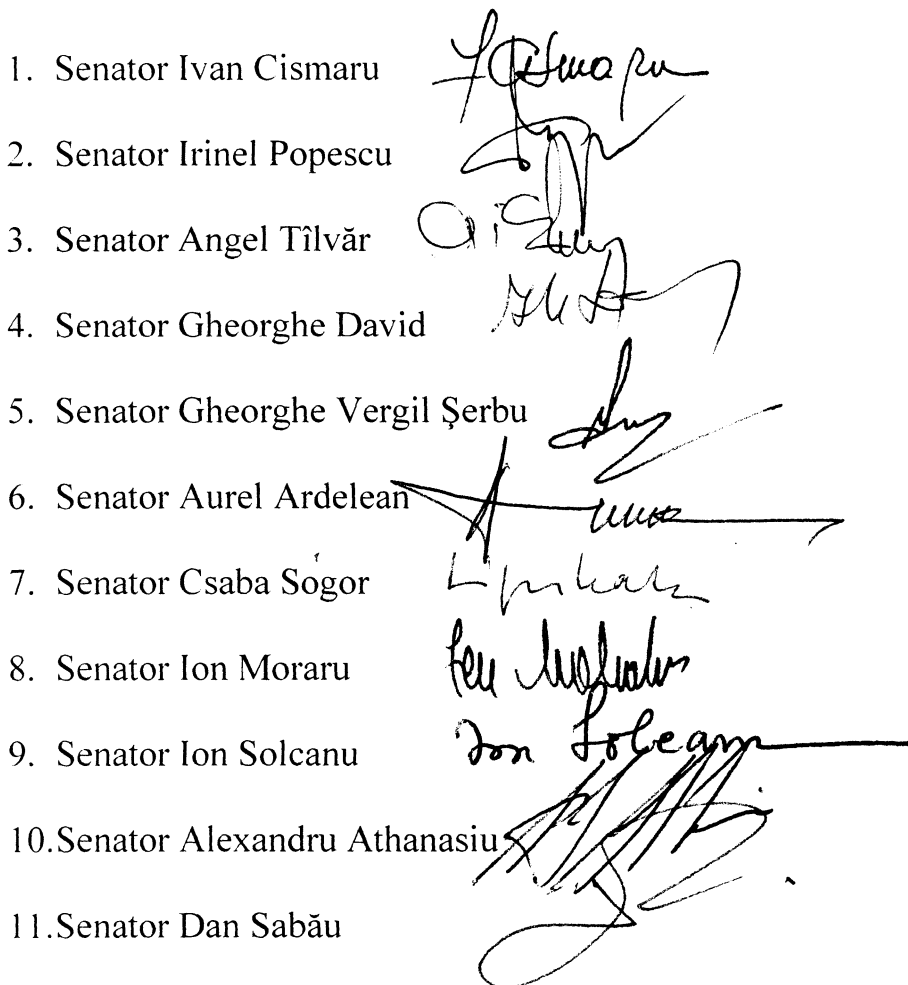 1. Senator Ivan Cismaru
2. Senator Irinel Popescu
3. Senator Angel Tîlvăr
4. Senator Gheorghe David
5. Senator Gheorghe Vergil Şerbu
6. Senator Aurel Ardelean
7. Senator Csaba Sógor
8. Senator Ion Moraru
9. Senator Ion Solcanu Ion Solcanu
10.Senator Alexandru Athanasiu
11.Senator Dan Sabău